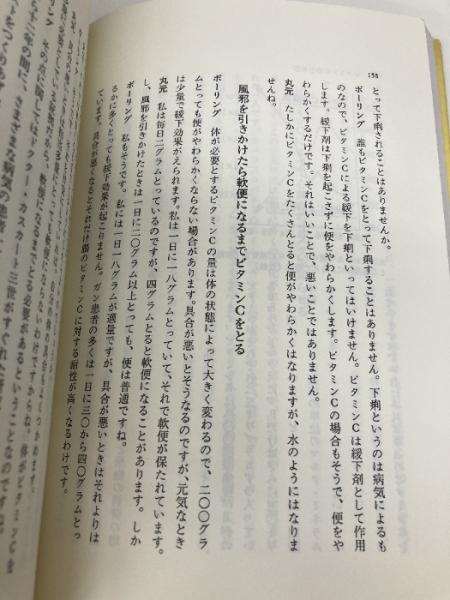 158
とって下痢されることはありませんか。
ポーリング 誰もビタミンCをとって下痢することはありません。下痢というのは病気によるも
のなので、ビタミンCによる緩下を下痢といってはいけません。ビタミンCは緩下剤として作用
します。緩下剤は下痢を起こさずに便をやわらかくします。ビタミンCの場合もそうで、便をや
わらかくするだけです。それはいいことで、悪いことではありません。
丸元 たしかにビタミンCをたくさんとると便がやわらかくはなりますが、水のようにはなりま
せんね。
風邪を引きかけたら軟便になるまでビタミンCをとる
ポーリング 体が必要とするビタミンCの量は体の状態によって大きく変わるので、二〇〇グラ
ムとっても便がやわらかくならない場合があります。具合が悪いとそうなるのですが、元気なとき
は少量で緩下効果がえられます。私は一日に一八グラムとっていて、それで軟便が保たれています。
丸元 私は毎日二グラムとっているのですが、四グラムとると軟便になることがあります。しか
し、風邪を引きかけたときは一日に二〇グラム以上とっても、便は普通ですね。
ポーリング 私もそうです。私には一日一八グラムが適量ですが、具合が悪いときはそれよりは
るかに多くとっても緩下効果が起こりません。ガン患者の多くは一日に三〇から四〇グラムとっ
ています。具合が悪くなるとそれだけ腸のビタミンCに対する耐性が高くなるわけです。